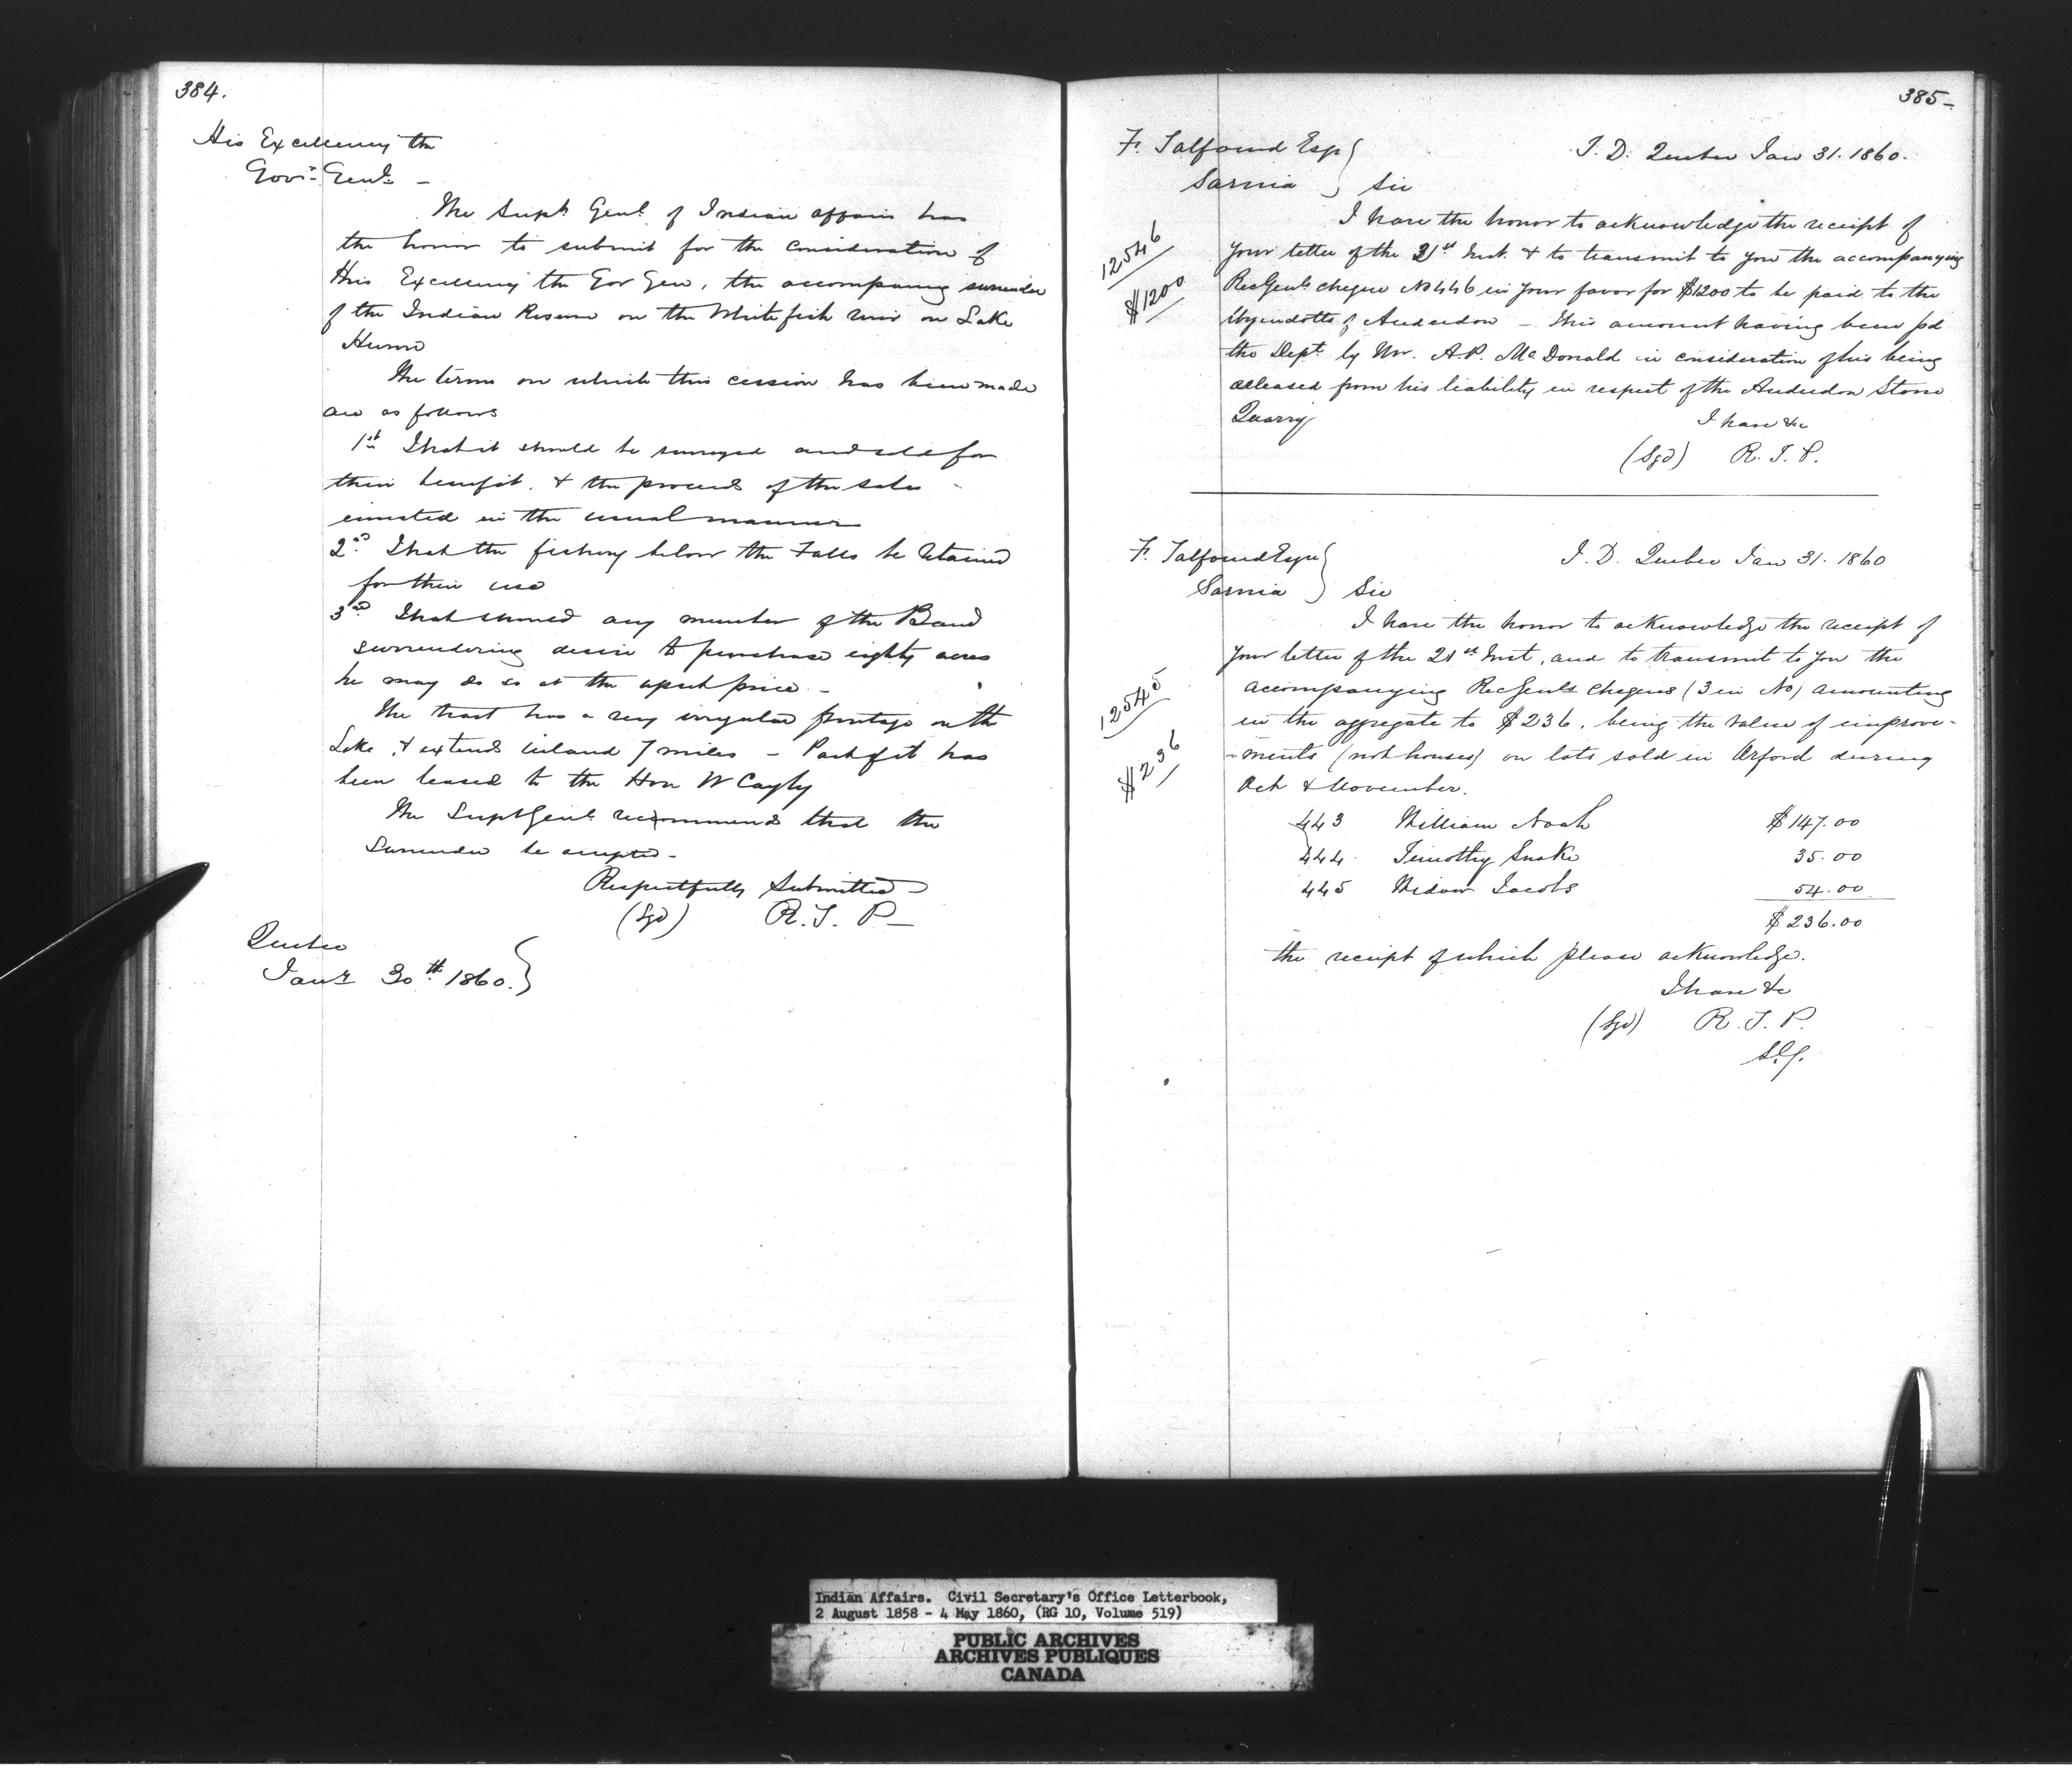 384.
His Excellency the
Govr Genl –
The Supt Genl of Indian affairs has
the honor to submit for the consideration of
His Excellency the Gov Gen, the accompanying surrender
of the Indian Reserve on the Whitefish river on Lake
Huron
The terms on which this cession has been made
are as follows
1st That it should be surveyed and sold for
their benefit, & the proceeds of the sales
invested in the usual manner
2nd That the fishery below the Falls be retained
for their use
3rd That should any member of the Band
surrendering desire to purchase eighty acres
he may do so at the upset price –
The tract has a very irregular frontage on the
Lake, & extends inland 7 miles – Part of it has
been leased to the Hon W Cayly
The Supt Genl recommends that the
Surrender be accepted –
Respectfully Submitted –
(Sgd) R. T. P –
Quebec
Jany 30th 1860.
385–
F. Talfourd Esqr
Sarnia
I. D. Quebec Jan 31. 1860.
Sir
I have the honor to acknowledge the receipt of
your letter of the 21st Inst. & to transmit to you the accompanying
12546
$1200
RecGenls cheque No 446 in your favor for $1200 to be paid to the
Wyandotts of Anderdon – this amount having been pd
the Dept by Mr. A.P. McDonald in consideration of his being
released from his liability in respect of the Anderdon Stone
Quarry
I have &c
(Sgd) R. T. P.
F. Talfourd Esqre
Sarnia
I. D. Quebec Jan 31. 1860
Sir
I have the honor to acknowledge the receipt of
your letter of the 21st Inst, and to transmit to you the
12545
$236
accompanying RecGenls cheques (3 in No) amounting
in the aggregate to $236, being the value of improve-
-ments (not houses) on lots sold in Orford during
Oct & November.
443 William Noah $147.00
444 Timothy Snake 35.00
445 Widow Jacobs 54.00
$236.00
the receipt of which please acknowledge.
I have &c
(Sgd) R. T. P.
Indian Affairs. Civil Secretary's Office Letterbook,
2 August 1858 - 4 May 1860, (RG 10, Volume 519)
PUBLIC ARCHIVES
ARCHIVES PUBLIQUES
CANADA